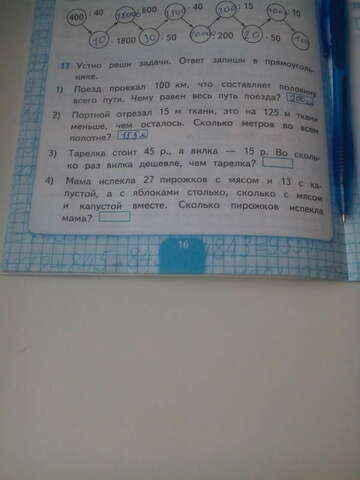 400 : 40 600 · 40 : 15 · 10
10 · 1800 30 · 50 · 200 20 · 50
17 Устно реши задачи. Ответ запиши в прямоуголь-
нике.
1) Поезд проехал 100 км, что составляет половину
всего пути. Чему равен весь путь поезда?
2) Портной отрезал 15 м ткани, это на 125 м ткани
меньше, чем осталось. Сколько метров во всём
полотне?
3) Тарелка стоит 45 р., а вилка — 15 р. Во сколь-
ко раз вилка дешевле, чем тарелка?
4) Мама испекла 27 пирожков с мясом и 13 с ка-
пустой, а с яблоками столько, сколько с мясом
и капустой вместе. Сколько пирожков испекла
мама?
16